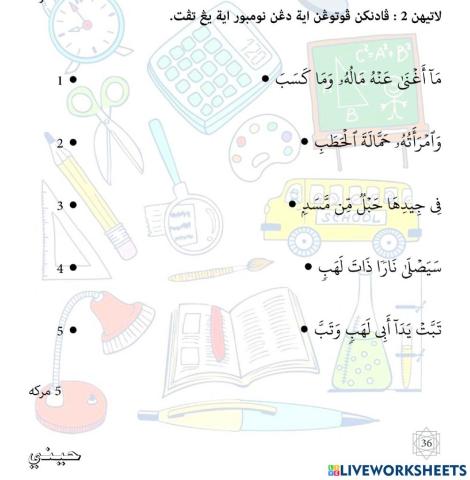 لاتيهن 2 : ڤادنكن ڤوتوڠن اية دڠن نومبور اية يڠ تڤت.
مَآ أَغْنَىٰ عَنْهُ مَالُهُۥ وَمَا كَسَبَ • • 1
وَٱمْرَأَتُهُۥ حَمَّالَةَ ٱلْحَطَبِ • • 2
فِى جِيدِهَا حَبْلٌ مِّن مَّسَدٍۭ • • 3
سَيَصْلَىٰ نَارًا ذَاتَ لَهَبٍ • • 4
تَبَّتْ يَدَآ أَبِى لَهَبٍ وَتَبَّ • • 5
5 مركه
36
LIVEWORKSHEETS
C²=A²+B²
A
B
SCHOOL